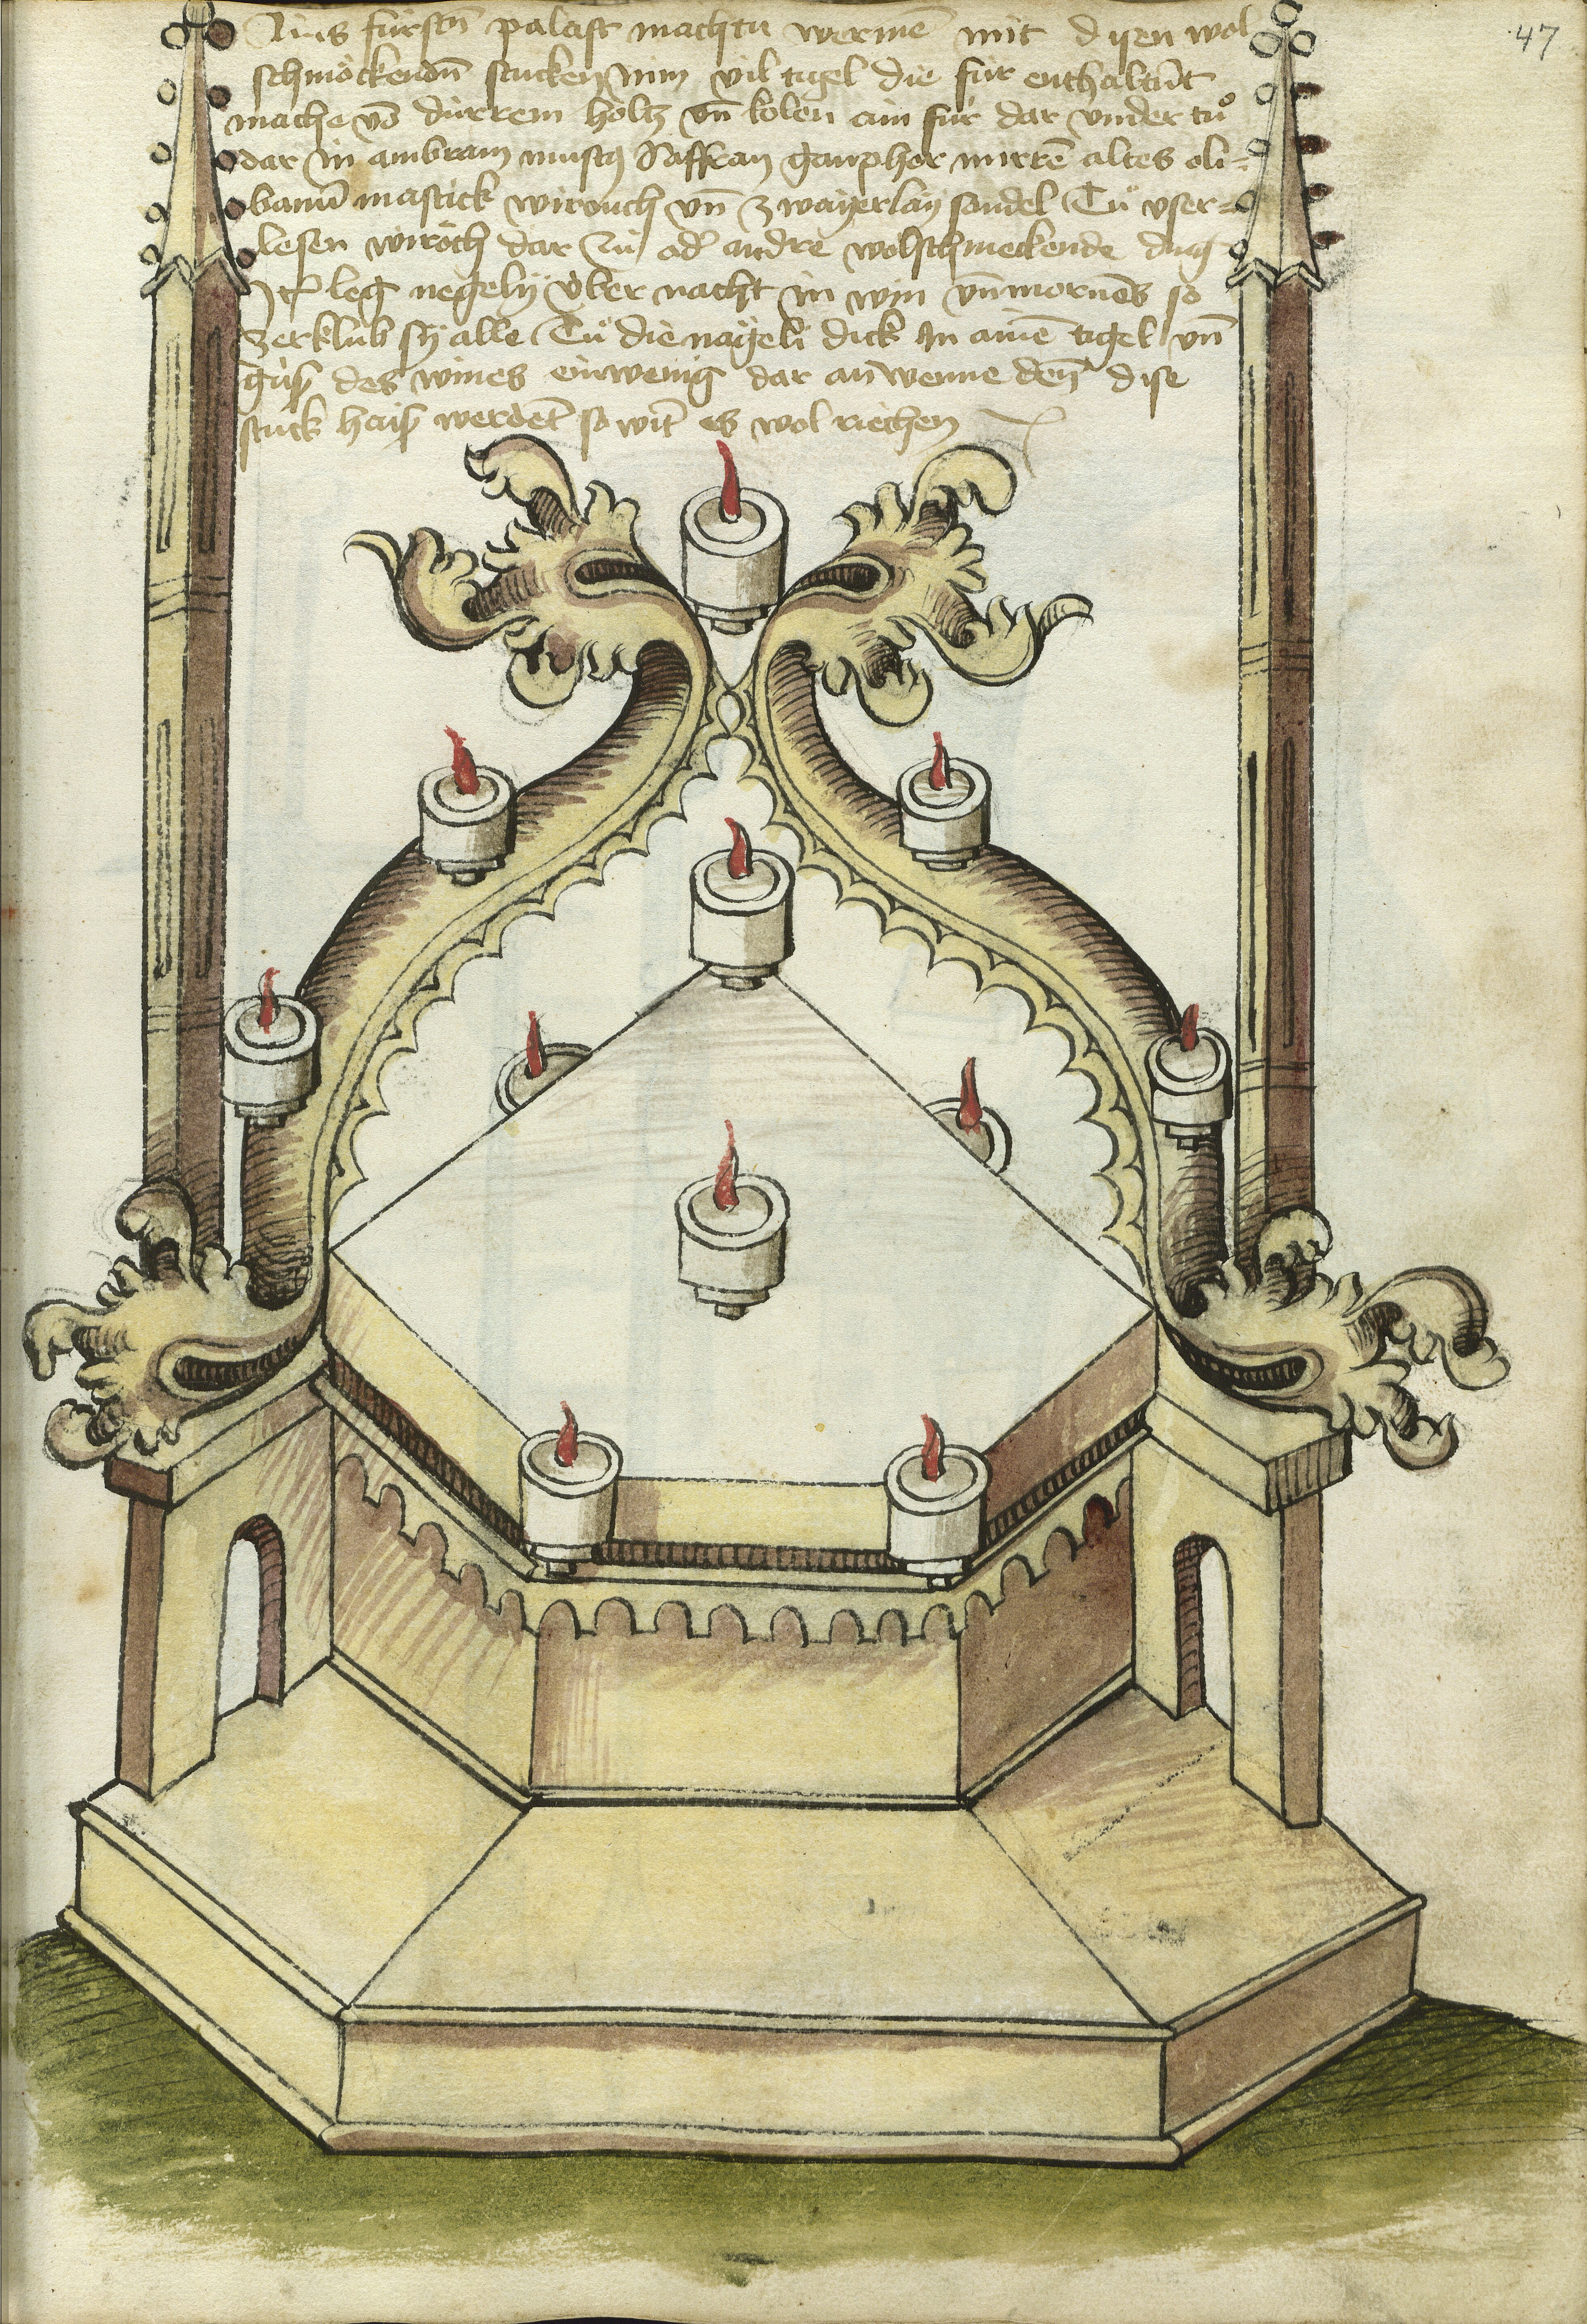 47
Ains fürsten̄ palast machtu wermē mit disen wol
schmöckendn̄ stucken Nim vil tigel die für enthaltēt
mache vō dürrem holtz vn̄ kolen ain für dar vnder tů
dar in ambram muscɋ Saffran ganpher mirrē altes oli=
banū mastick wirouch vn̄ zwayerlay sandel Tů vser=
lesen wiroch dar zů od' andre wolschmeckende ding
It̄ leg negely über nacht in win vn̄ mornēs so
zerklüb sy alle Tů die nägeli dick In ainē tigel vn̄
güß des wines ein wenig dar an wenne den̄ dise
stuck haiß werdēt so wit̄ es wol riechen